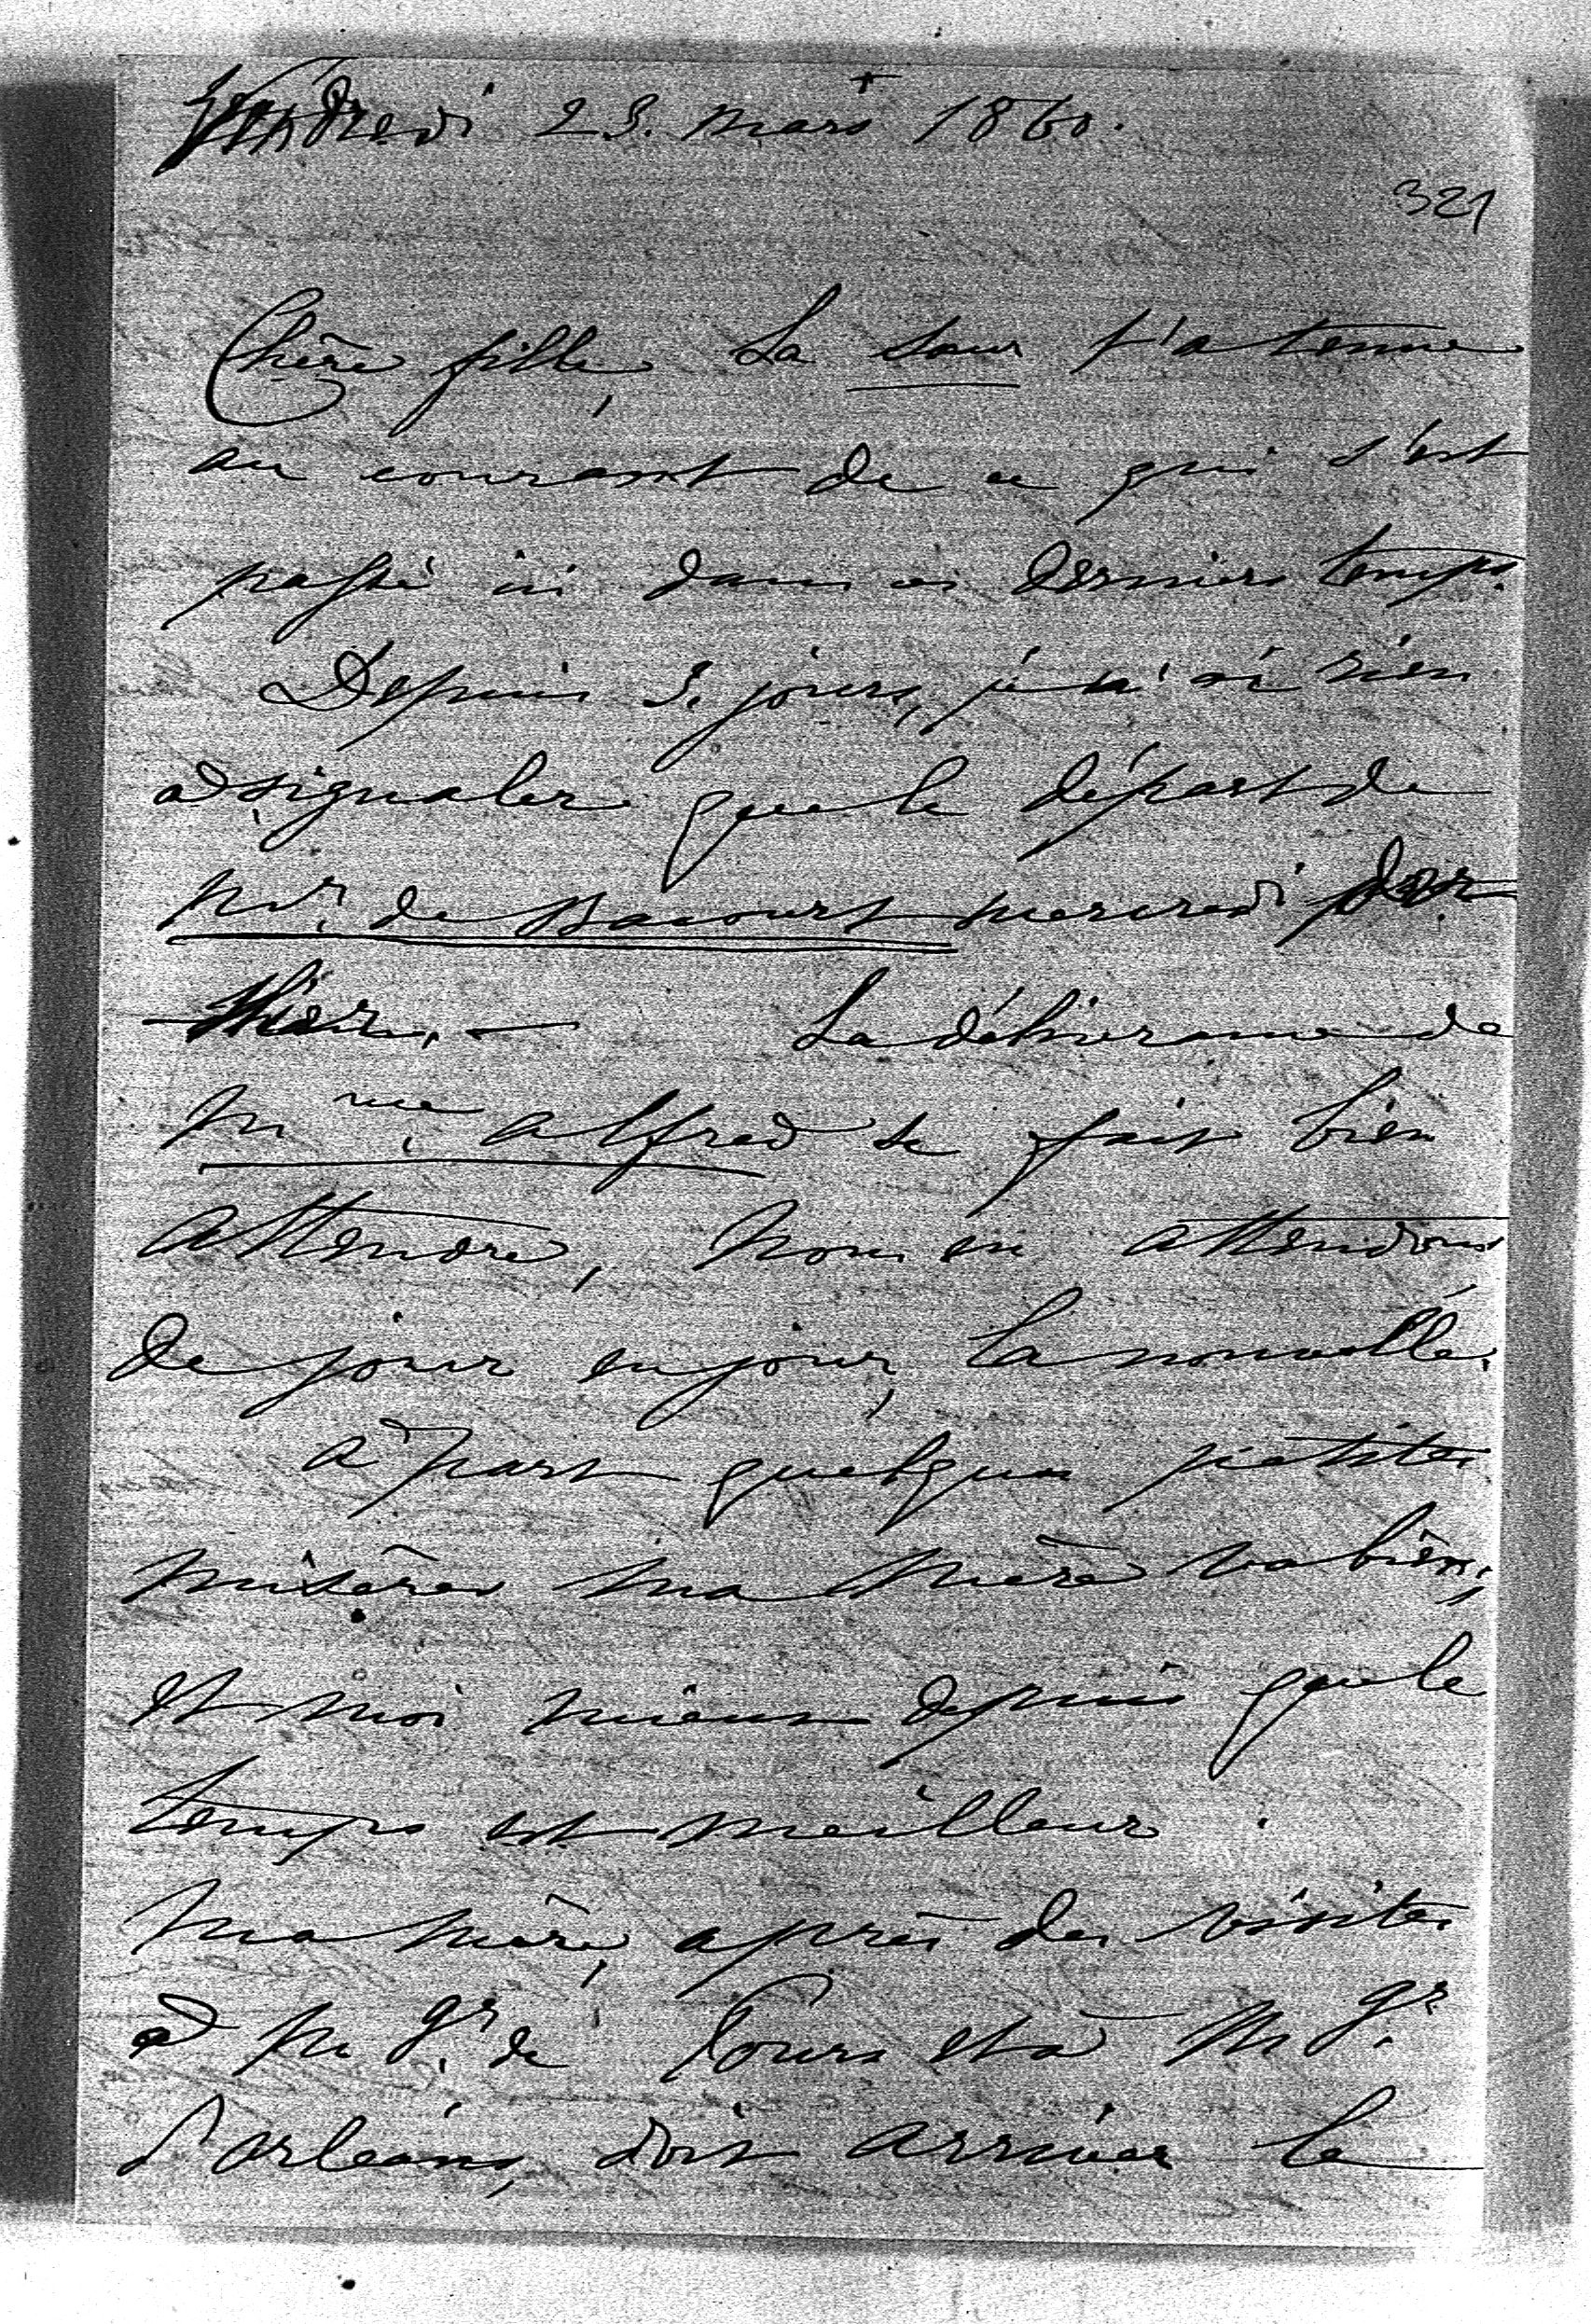 +
Vendredi 23. mars 1860.
321
Chère fille, La Sœur t'a tenue
au courant de ce qui s'est
passé ici dans ces derniers temps.
Depuis 3. jours, je n'ai rien
à signaler que le départ de
Mr. de Bacourt mercredi der
nier. — La délivrance de
Mme. Alfred se fait bien
attendre, nous en attendons
de jour en jour, la nouvelle.
à part quelques petites
misères ma Mère va bien;
et moi mieux depuis que le
temps est meilleur.
Ma mère, après des visites
à Mgr. de Tours et à Mgr.
d'orléans, doit arriver le